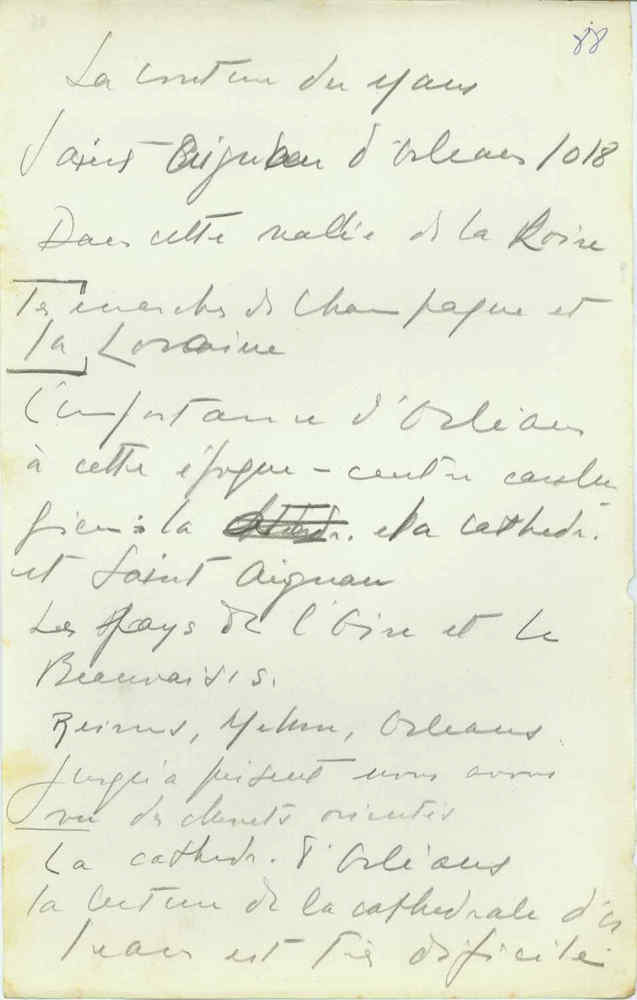 88
La couture du Mans
Saint Aignan d'Orleans 1018
Dans cette vallée de la Loire
Les marches de Champagne et
la Lorraine
L'importance d'Orléans
à cette époque - centre carolin
gien : la cathedr.
et Saint Aignan
Les pays de l'Oise et le
Beauvaisis.
Reims, Melun, Orleans
Jusqu'à présent nous avons
vu des chevets orientés
La cathedr. d'Orléans
la lecture de la cathedrale d'Or
leans est très difficile